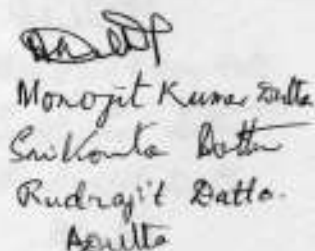 Monojit Kumar Dutta
Srikonta Dutta
Rudrajit Datta.
ADutta